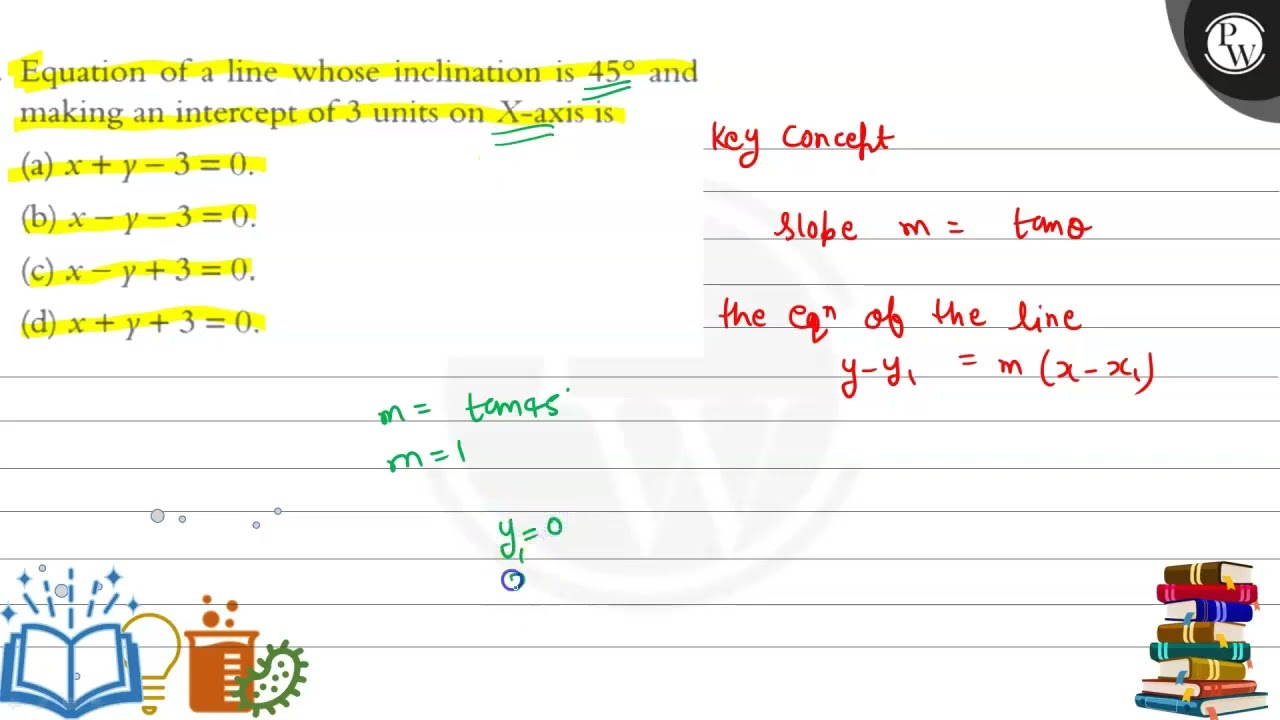 Equation of a line whose inclination is 45° and
making an intercept of 3 units on X-axis is
(a) x + y − 3 = 0.
(b) x − y − 3 = 0.
(c) x − y + 3 = 0.
(d) x + y + 3 = 0.
Key Concept
slope m = tanθ
the eqⁿ of the line
y − y₁ = m (x − x₁)
m = tan45°
m = 1
y₁ = 0
PW